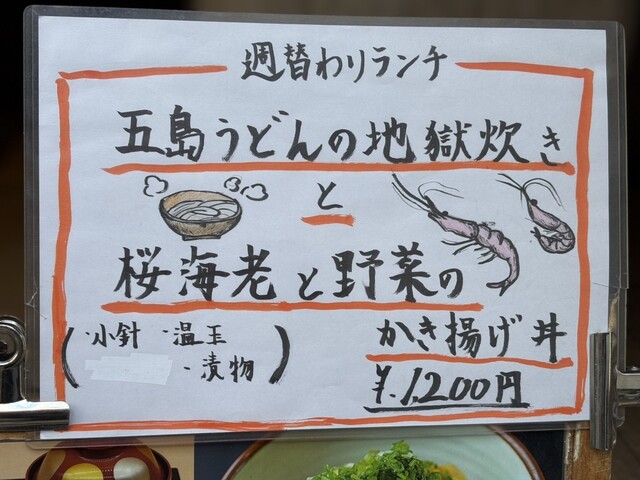 週替わりランチ
五島うどんの地獄炊き
と
桜海老と野菜の
かき揚げ丼
(・小針 ・温玉
・漬物)
¥.1,200円